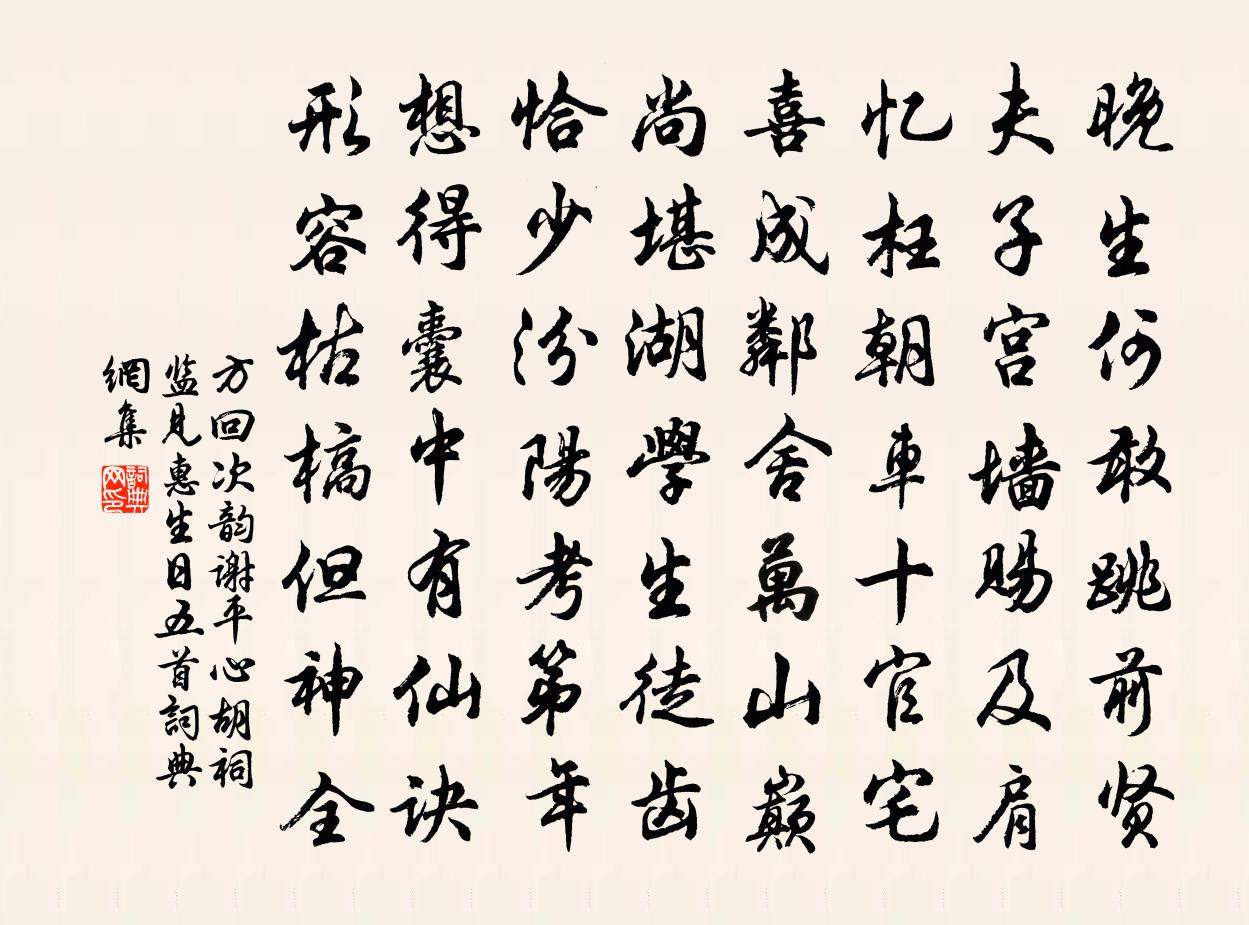 晚生何敢跳前贤
夫子宫墙赐及肩
忆枉朝车十官宅
喜成鄰舍萬山巅
尚堪湖學生徒齿
恰少汾陽考第年
想得囊中有仙诀
形容枯槁但神全
方回次韵谢平心胡祠
监见惠生日五首詞典
網集
詞典
网印